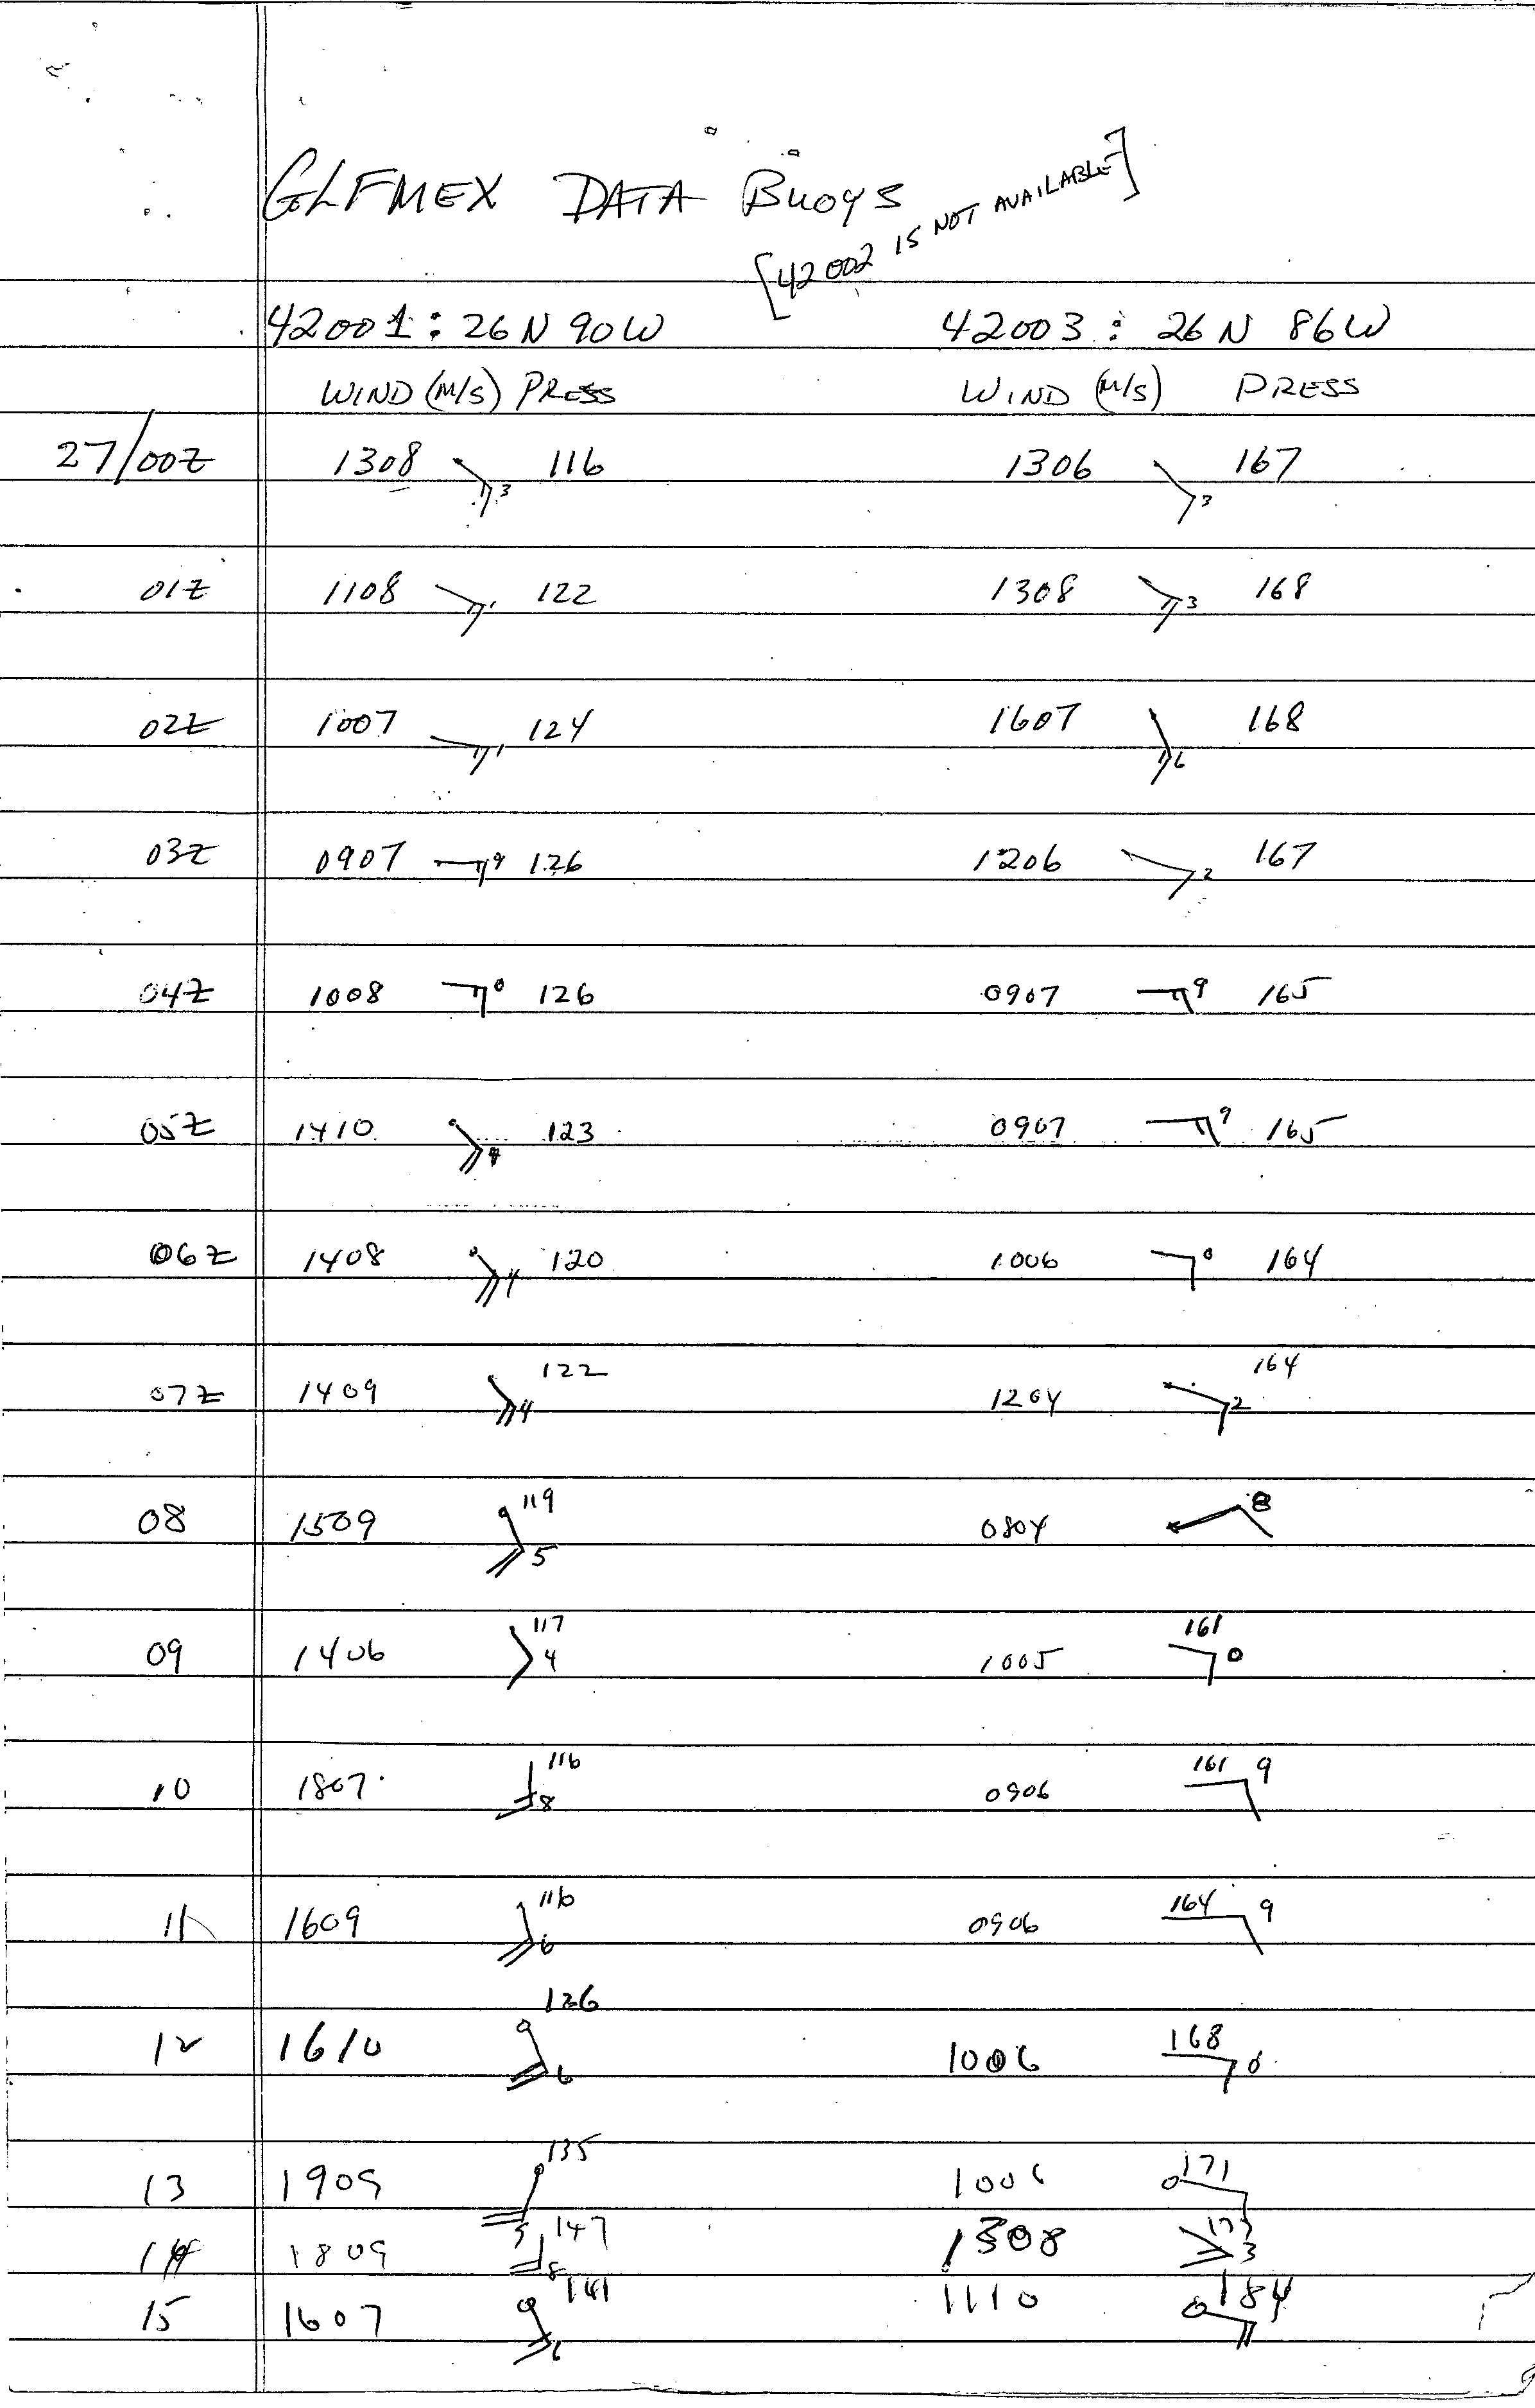 GLFMEX DATA BUOYS
[42002 IS NOT AVAILABLE]
42001: 26N 90W 42003: 26N 86W
WIND (M/S) PRESS WIND (M/S) PRESS
27/00Z 1308 3 116 1306 3 167
01Z 1108 1 122 1308 3 168
02Z 1007 1 124 1607 6 168
03Z 0907 9 126 1206 2 167
04Z 1008 0 126 0907 9 165
05Z 1410 4 123 0907 9 165
06Z 1408 4 120 1006 0 164
07Z 1409 4 122 1204 2 164
08 1509 5 119 0804 8
09 1406 4 117 1005 0 161
10 1807 8 116 0906 161 9
11 1609 6 116 0906 164 9
12 1610 6 126 1006 168 0
13 1909 135 1006 171
14 1809 8 147 1308 3
15 1607 6 141 1110 184